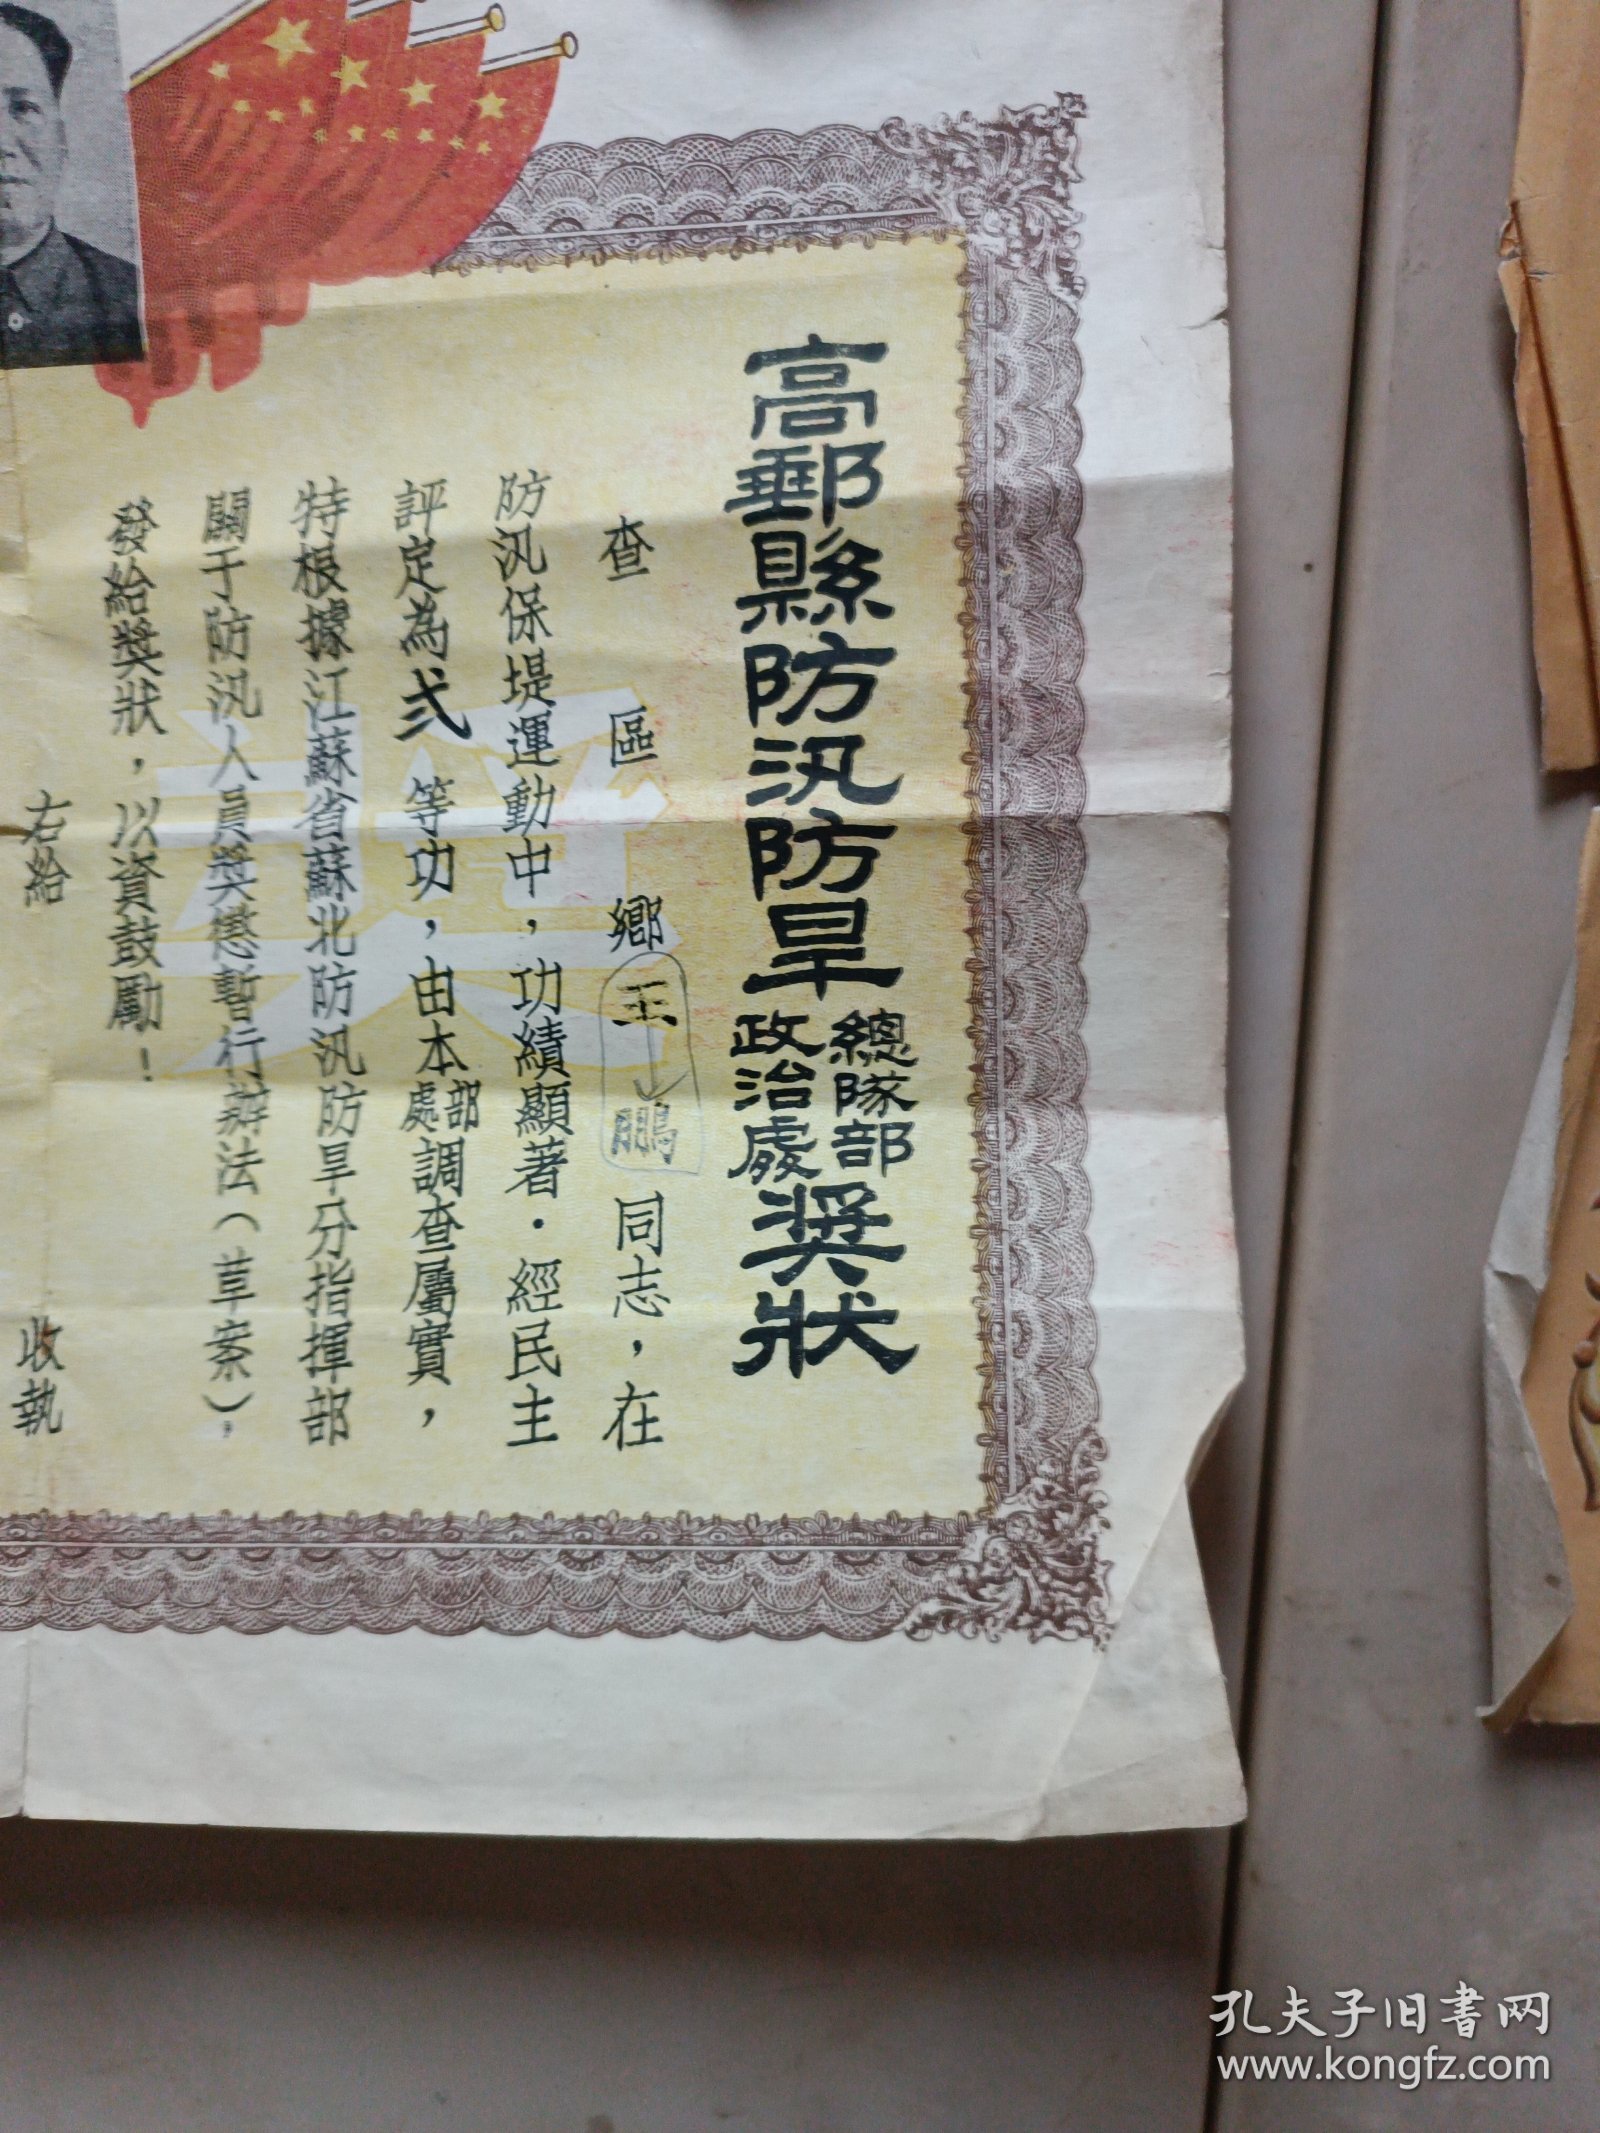 高郵縣防汛防旱總隊部政治處奬狀
查 區 鄉王鵬同志，在
防汛保堤運動中，功績顯著·經民主
評定為弍等功，由本部處調查屬實，
特根據江蘇省蘇北防汛防旱分指揮部
關于防汛人員奬懲暫行辦法（草案），
發給奬狀，以資鼓勵！
右給 收執
奬
孔夫子旧书网
www.kongfz.com